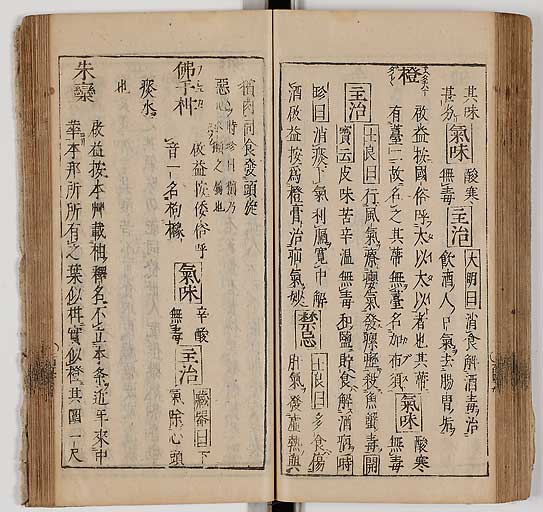 其味酸寒大明日消食解酒毒治
甚劣氣味無毒主治飲酒人口氣去腸胃
橙啟益按國俗呼太以太以者也其蒂
有臺二故名之其蒂無臺名加布須氣味酸寒無毒
主治士良曰行風氣療癭氣發瘰癧殺魚蟹毒開
寶云皮味苦辛溫無毒和鹽貯食解酒病時
珍曰消痰下氣利膈寬中解
酒啟益按為橙膏治疝氣妙禁忌士良曰多食傷肝氣發虛熱與
獱肉同食發頭旋
惡心時珍曰獱乃之屬也
佛手柑啟益按倭俗呼
音一名枸櫞氣味辛酸無毒主治藏器曰下氣除心頭
痰水
也
朱欒啟益按本艸載柚釋名不立本条近年來中
華本邦所所有之葉似柑實似橙其圍一尺